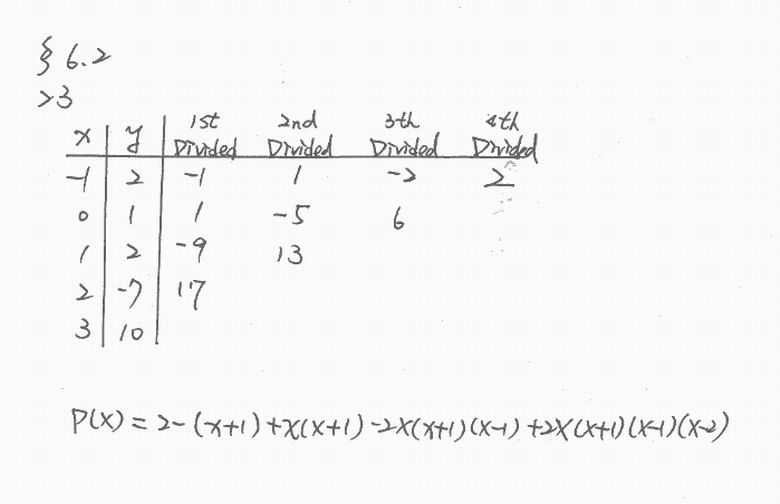 § 6.2
23
1st 2nd 3th 4th
x y Divided Divided Divided Divided
-1 2 -1 1 -2 2
0 1 1 -5 6
1 2 -9 13
2 -7 17
3 10
P(x) = 2-(x+1)+x(x+1)-2x(x+1)(x-1)+2x(x+1)(x-1)(x-2)